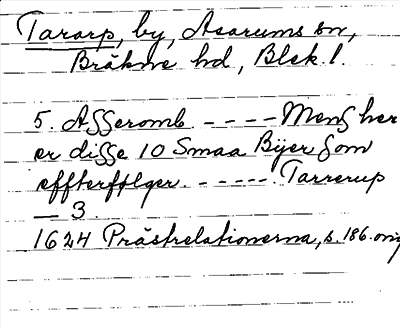 Tararp, by, Asarums sn,
Bräkne hd, Blek. l.
5. Asseromb - - - - Mens her
er disse 10 Smaa Byer som
effterfølger - - - - - Tarrerup
— 3.
1624 Prästrelationerna, s. 186. orig